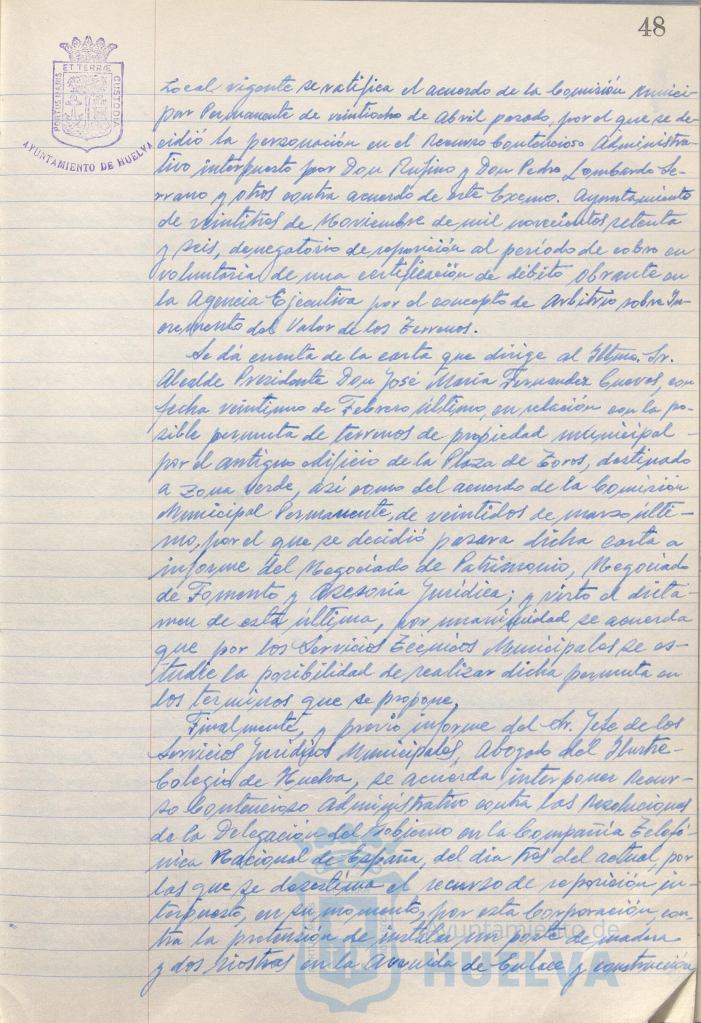 48
PORTUS MARIS ET TERRAE CUSTODIA
AYUNTAMIENTO DE HUELVA
Local vigente se ratifica el acuerdo de la Comisión Munici-
pal Permanente de veintiocho de Abril pasado, por el que se de-
cidió la personación en el Recurso Contencioso Administra-
tivo interpuesto por Don Rufino y Don Pedro Lombardo Se-
rrano y otros contra acuerdo de este Excmo. Ayuntamiento
de veintitres de Noviembre de mil novecientos setenta
y seis, denegatorio de reposición al período de cobro en
voluntaria de una certificación de débito obrante en
la Agencia Ejecutiva por el concepto de Arbitrio sobre In-
cremento del Valor de los Terrenos.
Se dá cuenta de la carta que dirige al Iltmo. Sr.
Alcalde Presidente Don José María Fernandez Cuevas, con
fecha veintiuno de Febrero último, en relación con la po-
sible permuta de terrenos de propiedad municipal -
por el antiguo edificio de la Plaza de Toros, destinado
a zona verde, así como del acuerdo de la Comisión
Municipal Permanente, de veintidos de marzo últi-
mo, por el que se decidió pasara dicha carta a
informe del Negociado de Patrimonio, Negociado
de Fomento y Asesoría Jurídica; y visto el dictá-
men de esta última, por unanimidad se acuerda
que por los Servicios Técnicos Municipales se es-
tudie la posibilidad de realizar dicha permuta en
los terminos que se propone.
Finalmente, y previo informe del Sr. Jefe de los
Servicios Jurídicos Municipales, Abogado del Ilustre
Colegio de Huelva, se acuerda interponer Recur-
so Contencioso Administrativo contra las Resoluciones
de la Delegación del Gobierno en la Compañía Telefó-
nica Nacional de España, del dia tres del actual, por
las que se desestima el recurso de reposición in-
terpuesto, en su momento, por esta Corporación, con-
tra la pretensión de instalar un poste de madera
y dos riostras en la Avenida de Enlace y construcción
Ayuntamiento de
HUELVA